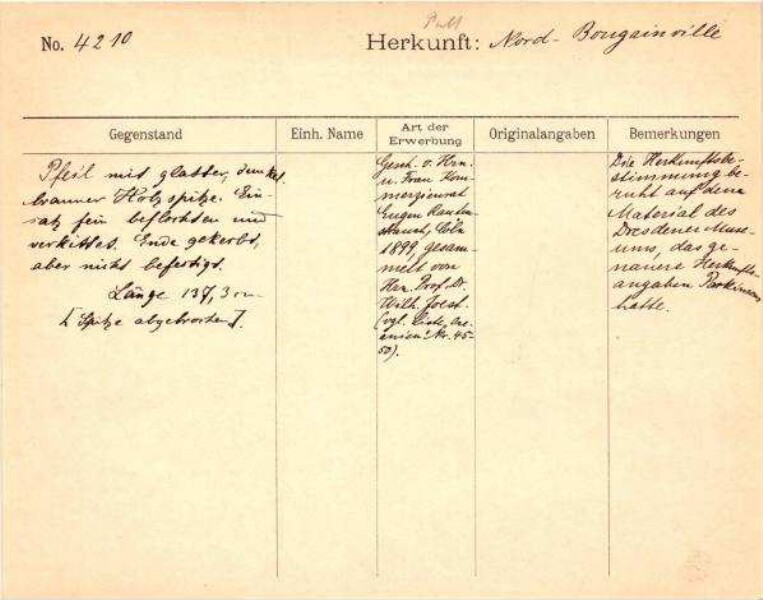 No. 4210
Herkunft: Nord-Bougainville
Gegenstand
Einh. Name
Art der
Erwerbung
Originalangaben
Bemerkungen
Pfeil mit glatter, dunkel
brauner Holzspitze. Ein-
satz fein beflochten und
verkittet. Ende gekerbt,
aber nicht befestigt.
Länge 137,3 cm
[Spitze abgebrochen].
Gesch. v. Hrn.
u. Frau Kom-
merzienrat
Eugen Rauten-
strauch, Cöln
1899, gesam-
melt von
Hrn. Prof. Dr.
Wilh. Joest.
(vgl. Liste „Oce-
anien" Nr. 45-
50).
Die Herkunftsbe-
stimmung be-
ruht auf dem
Material des
Dresdener Muse-
ums, das ge-
nauere Herkunfts-
angaben Parkinsons
hatte.